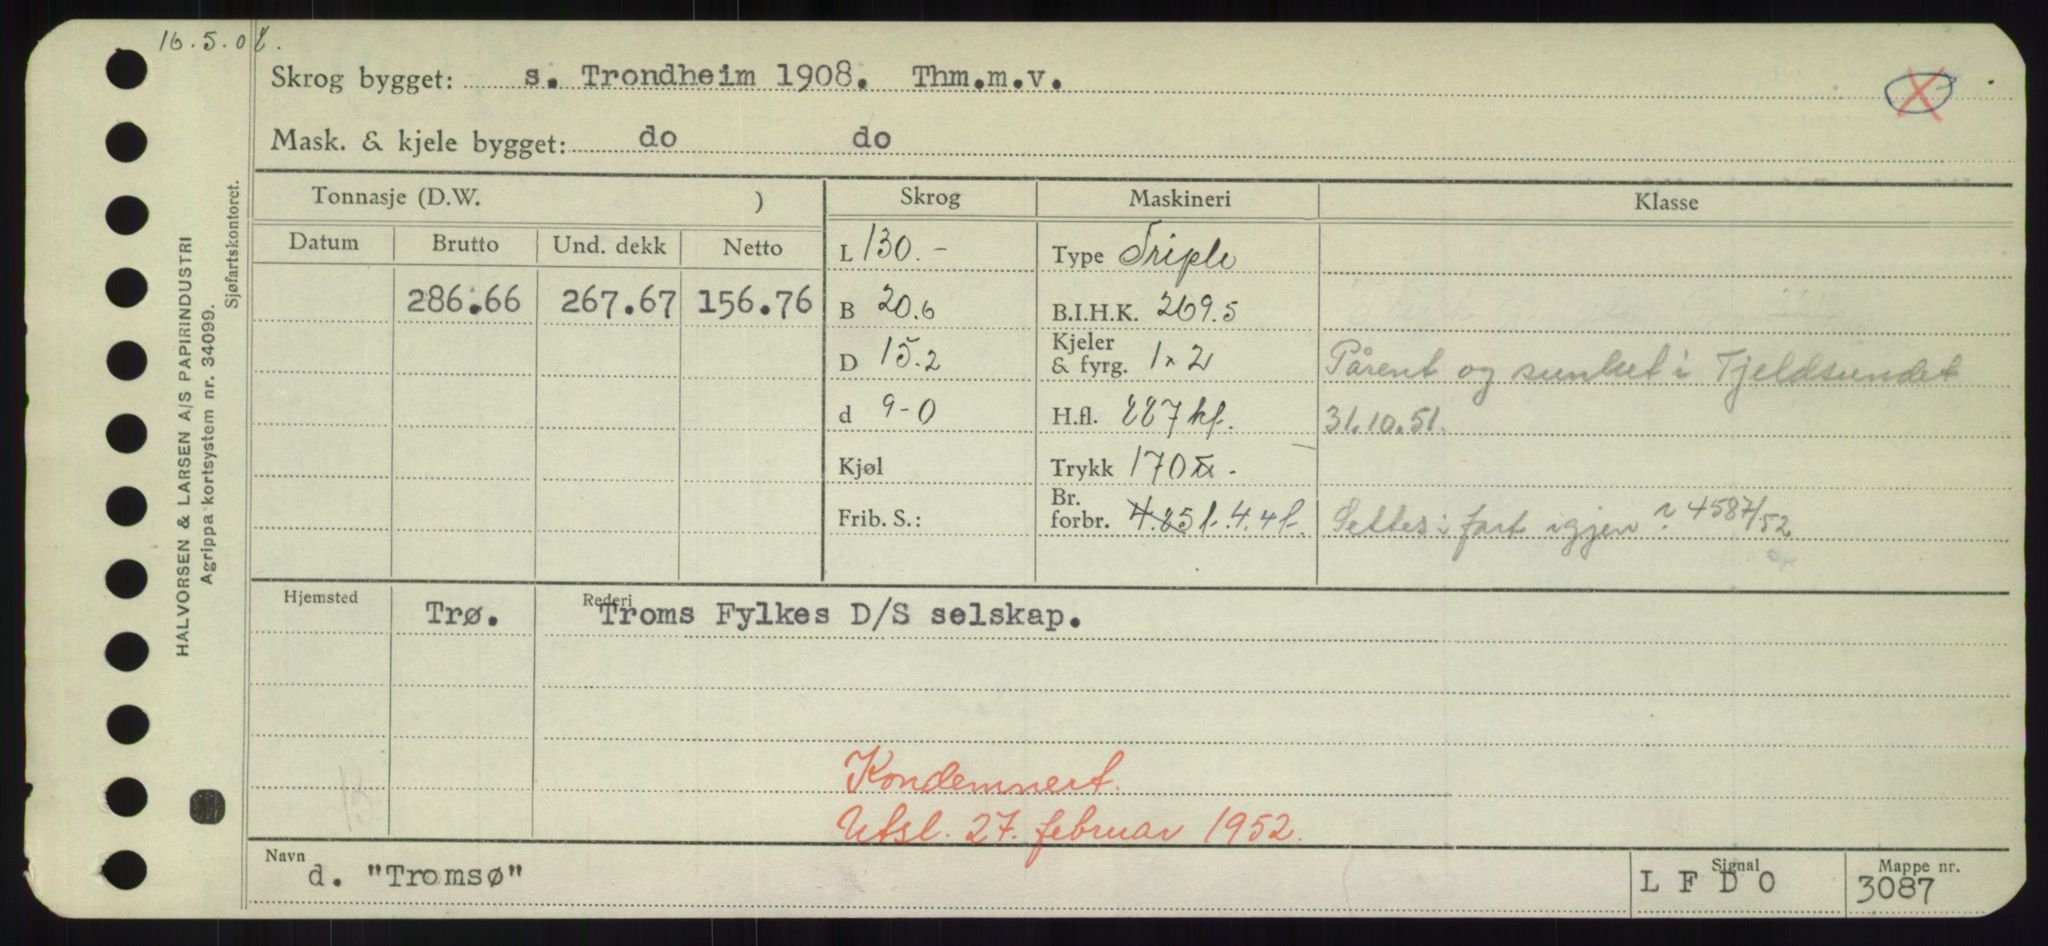 16.5.08.
Skrog bygget: s. Trondheim 1908. Thm.m.v.
Mask. & kjele bygget: do do
Tonnasje (D.W. )
Skrog
Maskineri
Klasse
Datum
Brutto
Und. dekk
Netto
286.66
267.67
156.76
L 130.-
B 20.6
D 15.2
d 9-0
Kjøl
Frib. S.:
Type Triple
B.I.H.K. 269.5
Kjeler & fyrg. 1 x 2
H.fl. 227 kf.
Trykk 170
Br. forbr. 4.25 t. 4.4 t.
Pårent og sunket i Tjeldsundet
31.10.51.
Settes i fart igjen ? 4587/52
Hjemsted
Trø.
Rederi
Troms Fylkes D/S selskap.
Kondemnert.
Utsl. 27. februar 1952.
Navn
d. "Tromsø"
Signal
L F D O
Mappe nr.
3087
HALVORSEN & LARSEN A/S PAPIRINDUSTRI
Agrippa kortsystem nr. 34099.
Sjøfartskontoret.